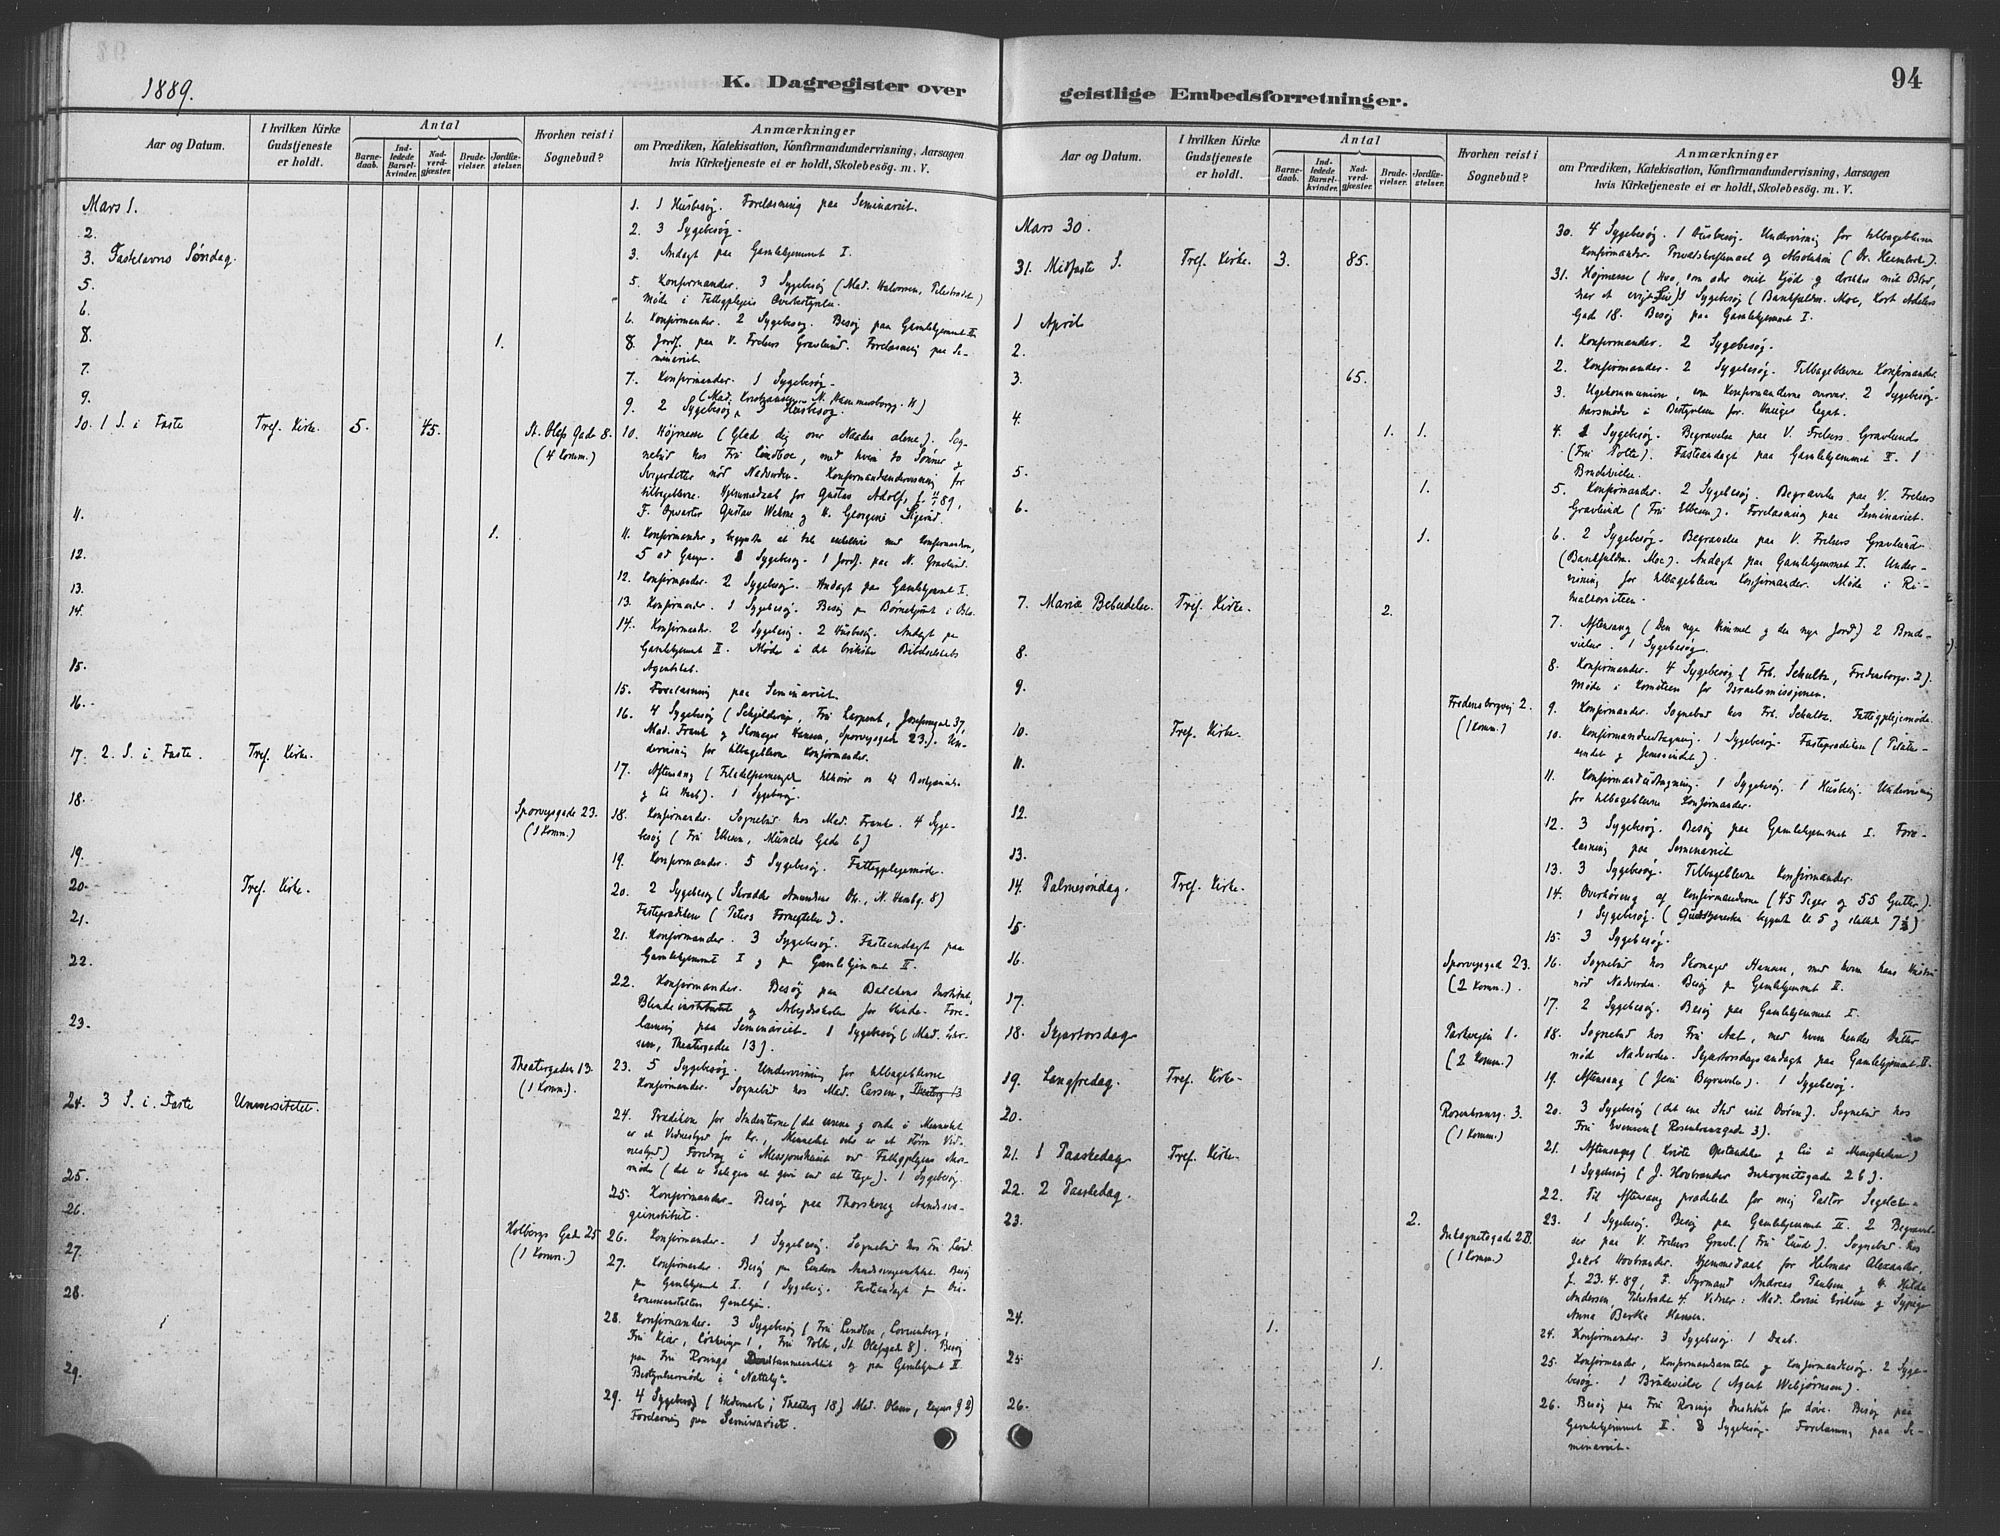 94
1889.
K. Dagregister over
geistlige Embedsforretninger.
Aar og Datum.
I hvilken Kirke
Gudstjeneste
er holdt.
Antal
Barne-
daab.
Ind-
ledede
Barsel-
kvinder.
Nad-
verd-
gjæster.
Brude-
vielser.
Jordfæ-
stelser.
Hvorhen reist i
Sognebud?
Anmærkninger
om Prædiken, Katekisation, Konfirmandundervisning, Aarsagen
hvis Kirketjeneste ei er holdt, Skolebesög. m. V.
Mars 1.
1. 1 Husbesøg. Forelæsning paa Seminariet.
2.
2. 3 Sygebesøg.
3. Fastelavns Søndag.
3. Andagt paa Gamlehjemmet I.
5.
5. Konfirmander. 3 Sygebesøg (Mad. Halvorsen, Telestrædet)
Møde i Fattigplejens Overbestyrelse.
6.
6. Konfirmander. 2 Sygebesøg. Besøg paa Gamlehjemmet II.
8. 1.
8. Jordf. paa V. Frelsers Gravlund. Forelæsning paa Se-
minariet.
7.
7. Konfirmander. 1 Sygebesøg.
9.
9. 2 Sygebesøg, 3 Husbesøg.
10. 1 S. i Faste Tref. Kirke. 5. 45. St. Olafs Gade 8.
(4 Komm.)
10. Højmesse (Glad dig over Naaden alene). Sog-
nebud hos Fru Lindboe, med hvem to Sønner og
Svigerdatter nød Nadverden. Konfirmandundervisning for
tilbageblevne. Hjemmedaab for Gustav Adolf,
F. Opvarter Gustav
11. 1.
5 ad Gangen. 3 Sygebesøg. 1 Jordf. paa N. Gravlund.
12.
12. Konfirmander. 2 Sygebesøg. Andagt paa Gamlehjemmet I.
13.
13. Konfirmander. 1 Sygebesøg. Besøg paa Børnehjemmet i Oslo.
14.
14. Konfirmander. 2 Sygebesøg. 2 Husbesøg. Andagt paa
Gamlehjemmet II. Møde i det britiske Bibelselskabs
Agentskab.
15.
15. Forelæsning paa Seminariet.
16.
16. 4 Sygebesøg (Schjelderup, Fru Larpent, Josefinegade 37,
Mad. Frank og Skomager Hansen, Sporvejsgade 23). Un-
dervisning for tilbageblevne Konfirmander.
17. 2. S. i Faste. Tref. Kirke.
17. Aftensang
1 Sygebesøg.
18. Sporvejsgade 23.
(1 Komm.)
18. Konfirmander. Sognebud hos Mad. Frank. 4 Syge-
besøg (Fru Ellesen, Munchs Gade 6)
19.
19. Konfirmander. 5 Sygebesøg. Fattigplejemøde.
20. Tref. Kirke.
20. 2 Sygebesøg
Fasteprædiken (Peters Fornegtelse).
21.
21. Konfirmander. 3 Sygebesøg. Fasteandagt paa
Gamlehjemmet I og paa Gamlehjemmet II.
22.
22. Konfirmander. Besøg paa Balchens Institut,
Blindeinstituttet og Arbejdsskolen for blinde. Fore-
læsning paa Seminariet. 1 Sygebesøg (Mad. Lar-
sen, Theatergaden 13).
23. Theatergaden 13.
(1 Komm.)
23. 5 Sygebesøg. Undervisning for tilbageblevne
Konfirmander. Sognebud hos Mad. Larsen, Theaterg 13
24. 3 S. i. Faste Universitetet.
24. Prædiken for Studenterne (det onde i Mennesket
er et Vidnesbyrd for Kr., Mennesket selv er et større Vid-
nesbyrd) Foredrag i Missionshuset ved Fattigplejens Aars-
møde (det er saligere at give end at tage). 1 Sygebesøg.
25.
25. Konfirmander. Besøg paa Thorshaug Aandssva-
geinstitut.
26. Holbergs Gade 25
(1 Komm.)
26. Konfirmander. 1 Sygebesøg. Sognebud hos Fru Lund.
27.
27. Konfirmander. Besøg paa Lindern Aandssvageinstitut. Besøg
paa Gamlehjemmet I. 1 Sygebesøg. Fasteandagt paa Dia-
konissenstiftelsens Gamlehjem.
28.
28. Konfirmander. 3 Sygebesøg (Fru Lindboe,
St. Olafsgade 8). Besøg
paa Fru Rosings Døvstummeinstitut og paa Gamlehjemmet II
Bestyrelsesmøde i "Nattely".
29.
29. 4 Sygebesøg
Forelæsning paa Seminariet.
Aar og Datum.
I hvilken Kirke
Gudstjeneste
er holdt.
Antal
Barne-
daab.
Ind-
ledede
Barsel-
kvinder.
Nad-
verd-
gjæster.
Brude-
vielser.
Jordfæ-
stelser.
Hvorhen reist i
Sognebud?
Anmærkninger
om Prædiken, Katekisation, Konfirmandundervisning, Aarsagen
hvis Kirketjeneste ei er holdt, Skolebesög. m. V.
Mars 30.
30. 4 Sygebesøg. 1 Husbesøg. Undervisning for tilbageblevne
Konfirmander. Privatskriftemaal og Absolution
31. Midfaste S. Tref. Kirke. 3. 85.
31. Højmesse (Hvo, som æder mit Kjød og drikker mit Blod,
har et evigt Liv) 1 Sygebesøg (Bankfuldm. Moe, Kort Adelers
Gad 18. Besøg paa Gamlehjemmet I.
1 April
1. Konfirmander. 2 Sygebesøg.
2.
2. Konfirmander. 2 Sygebesøg. Tilbageblevne Konfirmander.
3. 65.
3. Ugekommunion, som Konfirmanderne overvar. 2 Sygebesøg.
Aarsmøde i Bestyrelsen for Legat.
4. 1. 1.
4. 2 Sygebesøg. Begravelse paa V. Frelsers Gravlund
(Fru Nolte). Fasteandagt paa Gamlehjemmet II. 1
Brudevielse.
5. 1.
5. Konfirmander. 2 Sygebesøg. Begravelse paa V. Frelsers
Gravlund (Fru Ellesen). Forelæsning paa Seminariet.
6. 1.
6. 2 Sygebesøg. Begravelse paa V. Frelsers Gravlund
(Bankfuldm. Moe). Andagt paa Gamlehjemmet I. Under-
visning for tilbageblevne Konfirmander. Møde i
7. Mariæ Bebudelse. Tref. Kirke. 2.
7. Aftensang (Den nye Himmel og den nye Jord) 2 Brude-
vielser. 1 Sygebesøg
8.
8. Konfirmander. 4 Sygebesøg (Frk. Schultz, Fredensborgv. 2).
Møde i Komiteen for Israelsmissjonen.
9. Fredensborgvej 2.
(1 Komm.)
9. Konfirmander. Sognebud hos Frk. Schultz. Fattigplejemøde.
10. Tref. Kirke.
10. Konfirmandudtagning. 1 Sygebesøg. Fasteprædiken
11.
11. Konfirmandudtagning. 1 Sygebesøg. 1 Husbesøg. Undervisning
for tilbageblevne Konfirmander.
12.
12. 3 Sygebesøg. Besøg paa Gamlehjemmet I. Fore-
læsning paa Seminariet
13.
13. 3 Sygebesøg. Tilbageblevne Konfirmander.
14. Palmesøndag. Tref. Kirke.
14. Overhøring af Konfirmanderne (45 Piger og 55 Gutter).
1 Sygebesøg. (Gudstjenesten begyndte Kl 5 og sluttede 7½)
15.
15. 3 Sygebesøg.
16. Sporvejsgad 23.
(2 Komm.).
16. Sognebud hos Skomager Hansen, med hvem hans Hustru
nød Nadverden. Besøg paa Gamlehjemmet II.
17.
17. 2 Sygebesøg. Besøg paa Gamlehjemmet I.
18. Skjærtorsdag Parkvejen 1.
(2 Komm.)
18. Sognebud hos Fru Aall, med hvem hendes Datter
nød Nadverden. Skjærtorsdagsandagt paa Gamlehjemmet II.
19. Langfredag. Tref. Kirke.
19. Aftensang (Jesu Begravelse). 1 Sygebesøg.
20. Rosenkranzg. 3.
(1 Komm.)
20. 3 Sygebesøg Sognebud hos
Fru Evensen (Rosenkranzgade 3).
21. 1 Paaskedag Tref. Kirke.
21. Aftensang (Kristi Opstandelse og Liv i Menigheden)
1 Sygebesøg (J. Hovbrander Inkognitogade 26).
22. 2 Paaskedag.
22. Til Aftensang prædikede for mig Pastor
23. 2. Inkognitogade 2B.
(1 Komm.)
23. 1 Sygebesøg. Besøg paa Gamlehjemmet II. 2 Begravel-
ser paa V. Frelsers Gravl. (Fru Lunde). Sognebud hos
Jakob Hovbrander. Hjemmedaab for Hilmar Alexander,
f. 23.4.89, F. Styrmand Andreas Paulsen og H. Hilda
Andersen, Telestrædet 4. Vidner: Mad. Lovise Eriksen og Sypige
Anna Berthe Hansen.
24. 1.
24. Konfirmander. 3 Sygebesøg. 1 Daab.
25. 1.
25. Konfirmander, Konfirmandsamtale og Konfirmandbesøg. 2 Syge-
besøg. 1 Brudevielse (Agent Webjørnsen).
26.
26. Besøg paa Fru Rosings Institut for døve. Besøg paa
Gamlehjemmet I. 3 Sygebesøg. Forelæsning paa Se-
minariet.